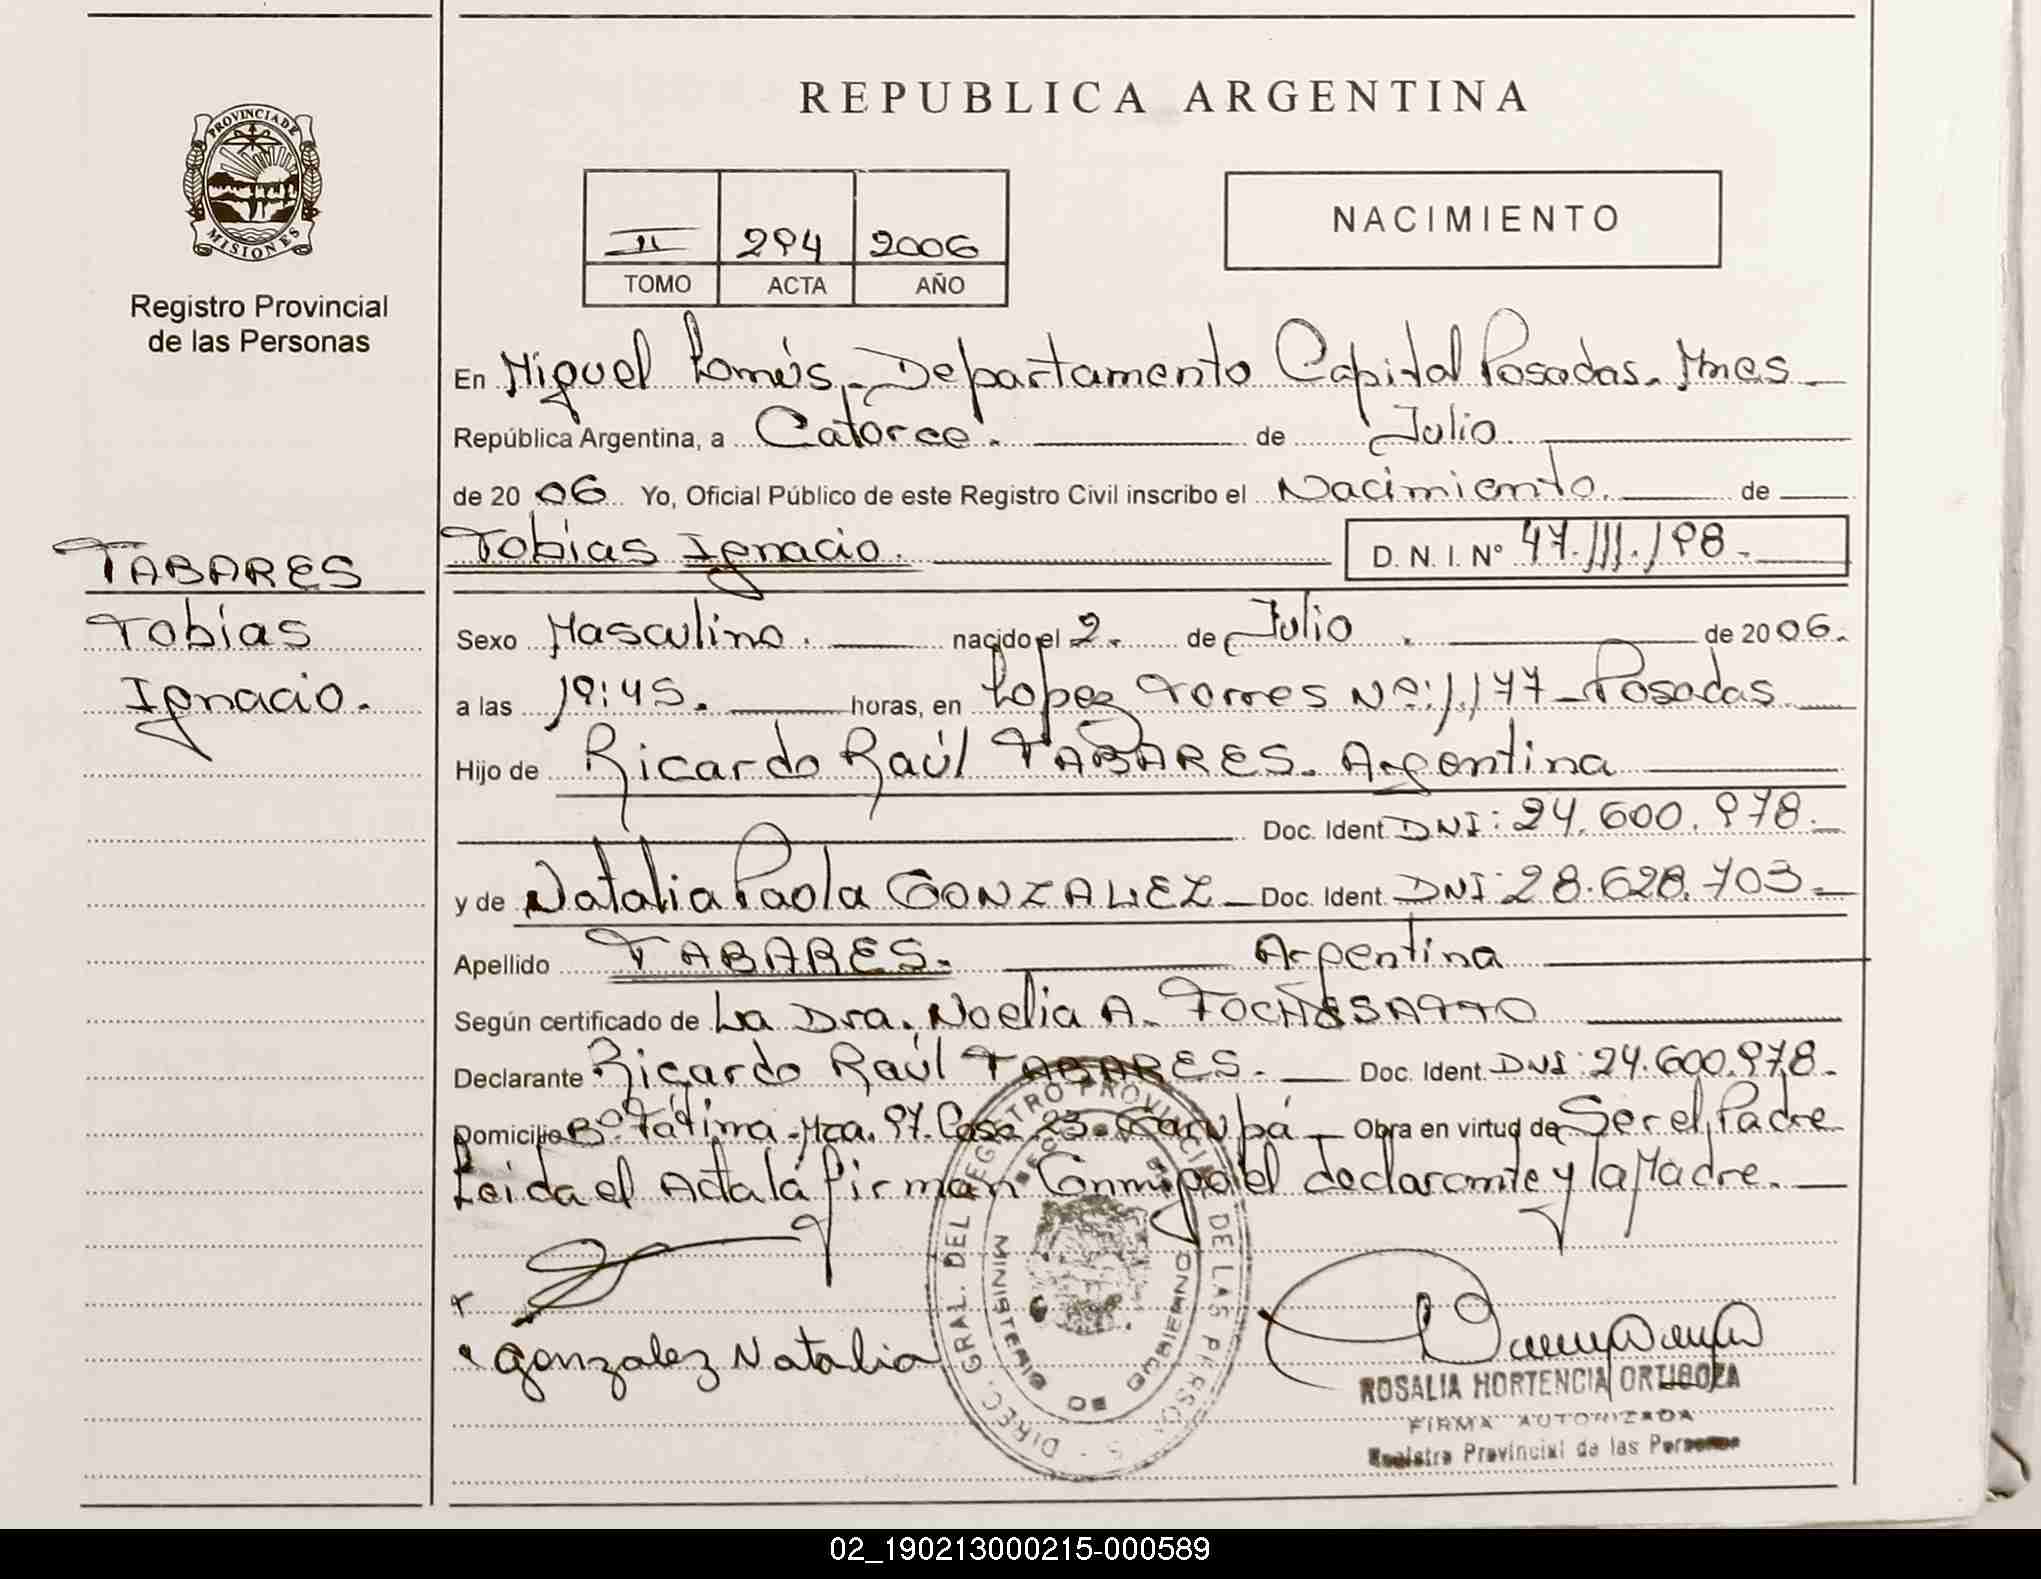 REPUBLICA ARGENTINA
PROVINCIA DE MISIONES
Registro Provincial
de las Personas
II 294 2006
TOMO ACTA AÑO
NACIMIENTO
En Miguel Lanús.- Departamento Capital Posadas. Mnes
República Argentina, a Catorce. de Julio
de 2006 Yo, Oficial Público de este Registro Civil inscribo el Nacimiento. de
TABARES
Tobías
Ignacio.
Tobías Ignacio. D. N. I. N° 47.111.198.-
Sexo Masculino. nacido el 2. de Julio. de 2006.
a las 19:45. horas, en Lopez Torres Nº: 1.177 - Posadas
Hijo de Ricardo Raúl TABARES. Argentina
Doc. Ident. DNI: 24.600.978.
y de Natalia Paola GONZALEZ - Doc. Ident. DNI: 28.628.703.-
Apellido TABARES. Argentina
Según certificado de La Dra. Noelia A. TOCHESATTO
Declarante Ricardo Raúl TABARES. Doc. Ident. DNI: 24.600.978.
Domicilio Bº Fátima - Mza. 97. Casa 23. Garupá - Obra en virtud de Ser el Padre
Leida el Acta la firman Conmigo el declarante y la Madre.
Gonzalez Natalia
DIREC. GRAL. DEL REGISTRO PROVINCIAL DE LAS PERSONAS
MINISTERIO DE GOBIERNO
ROSALIA HORTENCIA ORTIGOZA
FIRMA AUTORIZADA
Registro Provincial de las Personas
02_190213000215-000589